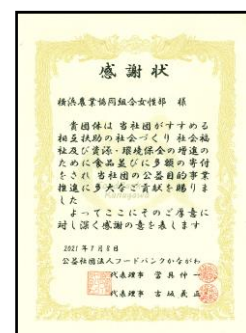 感謝状
横浜農業協同組合女性部 様
貴団体は 当社団がすすめる
相互扶助の社会づくり 社会福
祉及び資源・環境保全の増進の
ために食品並びに多額の寄付
をされ 当社団の公益目的事業
推進に多大なご貢献を賜りま
した
よってここにそのご厚意に
対し深く感謝の意を表します
2021年7月8日
公益社団法人フードバンクかながわ
代表理事 當具伸一
代表理事 吉城義